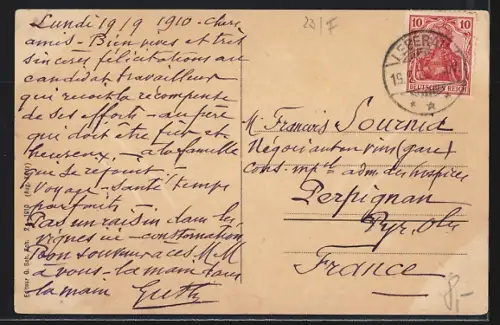 Lundi 19/9 1910 - chers
amis - Bien vives et très
sincères félicitations au
candidat travailleur
qui reçoit la récompense
de ses efforts - au père
qui doit être fier et
heureux, - à la famille
que se réjouit
Voyage - Santé, temps
parfaits
Pas un raisin dans les
vignes ici - consternation
Bon souvenir à ces MM
à vous - la main dans
la main
23/F
10 10
DEUTSCHES REICH
19.
M. Francois
Négociant en vins (gare)
Cons. mpal adm. des hospices
Perpignan
Pyr. Ole
France
8,-